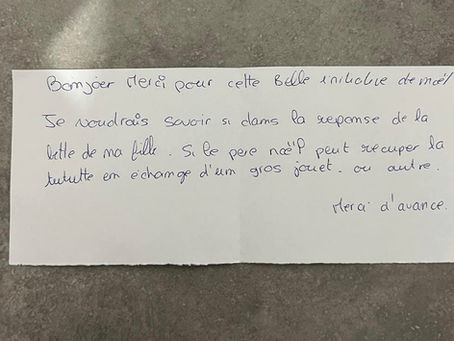 Bonjoer Merci pour cette Belle initiative de noël
Je voudrais savoir si dans la reponse de la
lette de ma fille. Si le pere noël peut récuper la
tututte en échange d'un gros jouet. ou autre.
Merci d'avance.